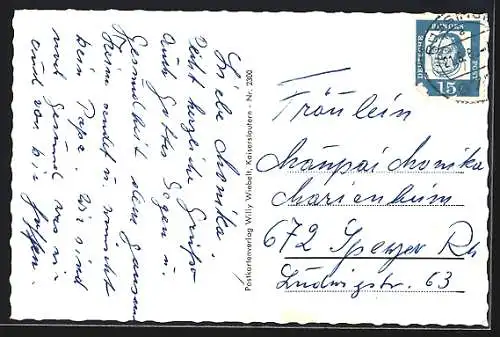 Liebe Monika!
Recht herzliche Grüße
auch Gottes Segen u.
Gesundheit dem ganzen
Heim sendet u. wünscht
Dein Papa. Wir sind
noch gesund was wir
auch von Dir hoffen.
Postkartenverlag Willy Wiebelt, Kaiserslautern - Nr. 2300
DEUTSCHE BUNDESPOST
15
Fräulein
Monika
Marienheim
672 Speyer Rh
Ludwigstr. 63